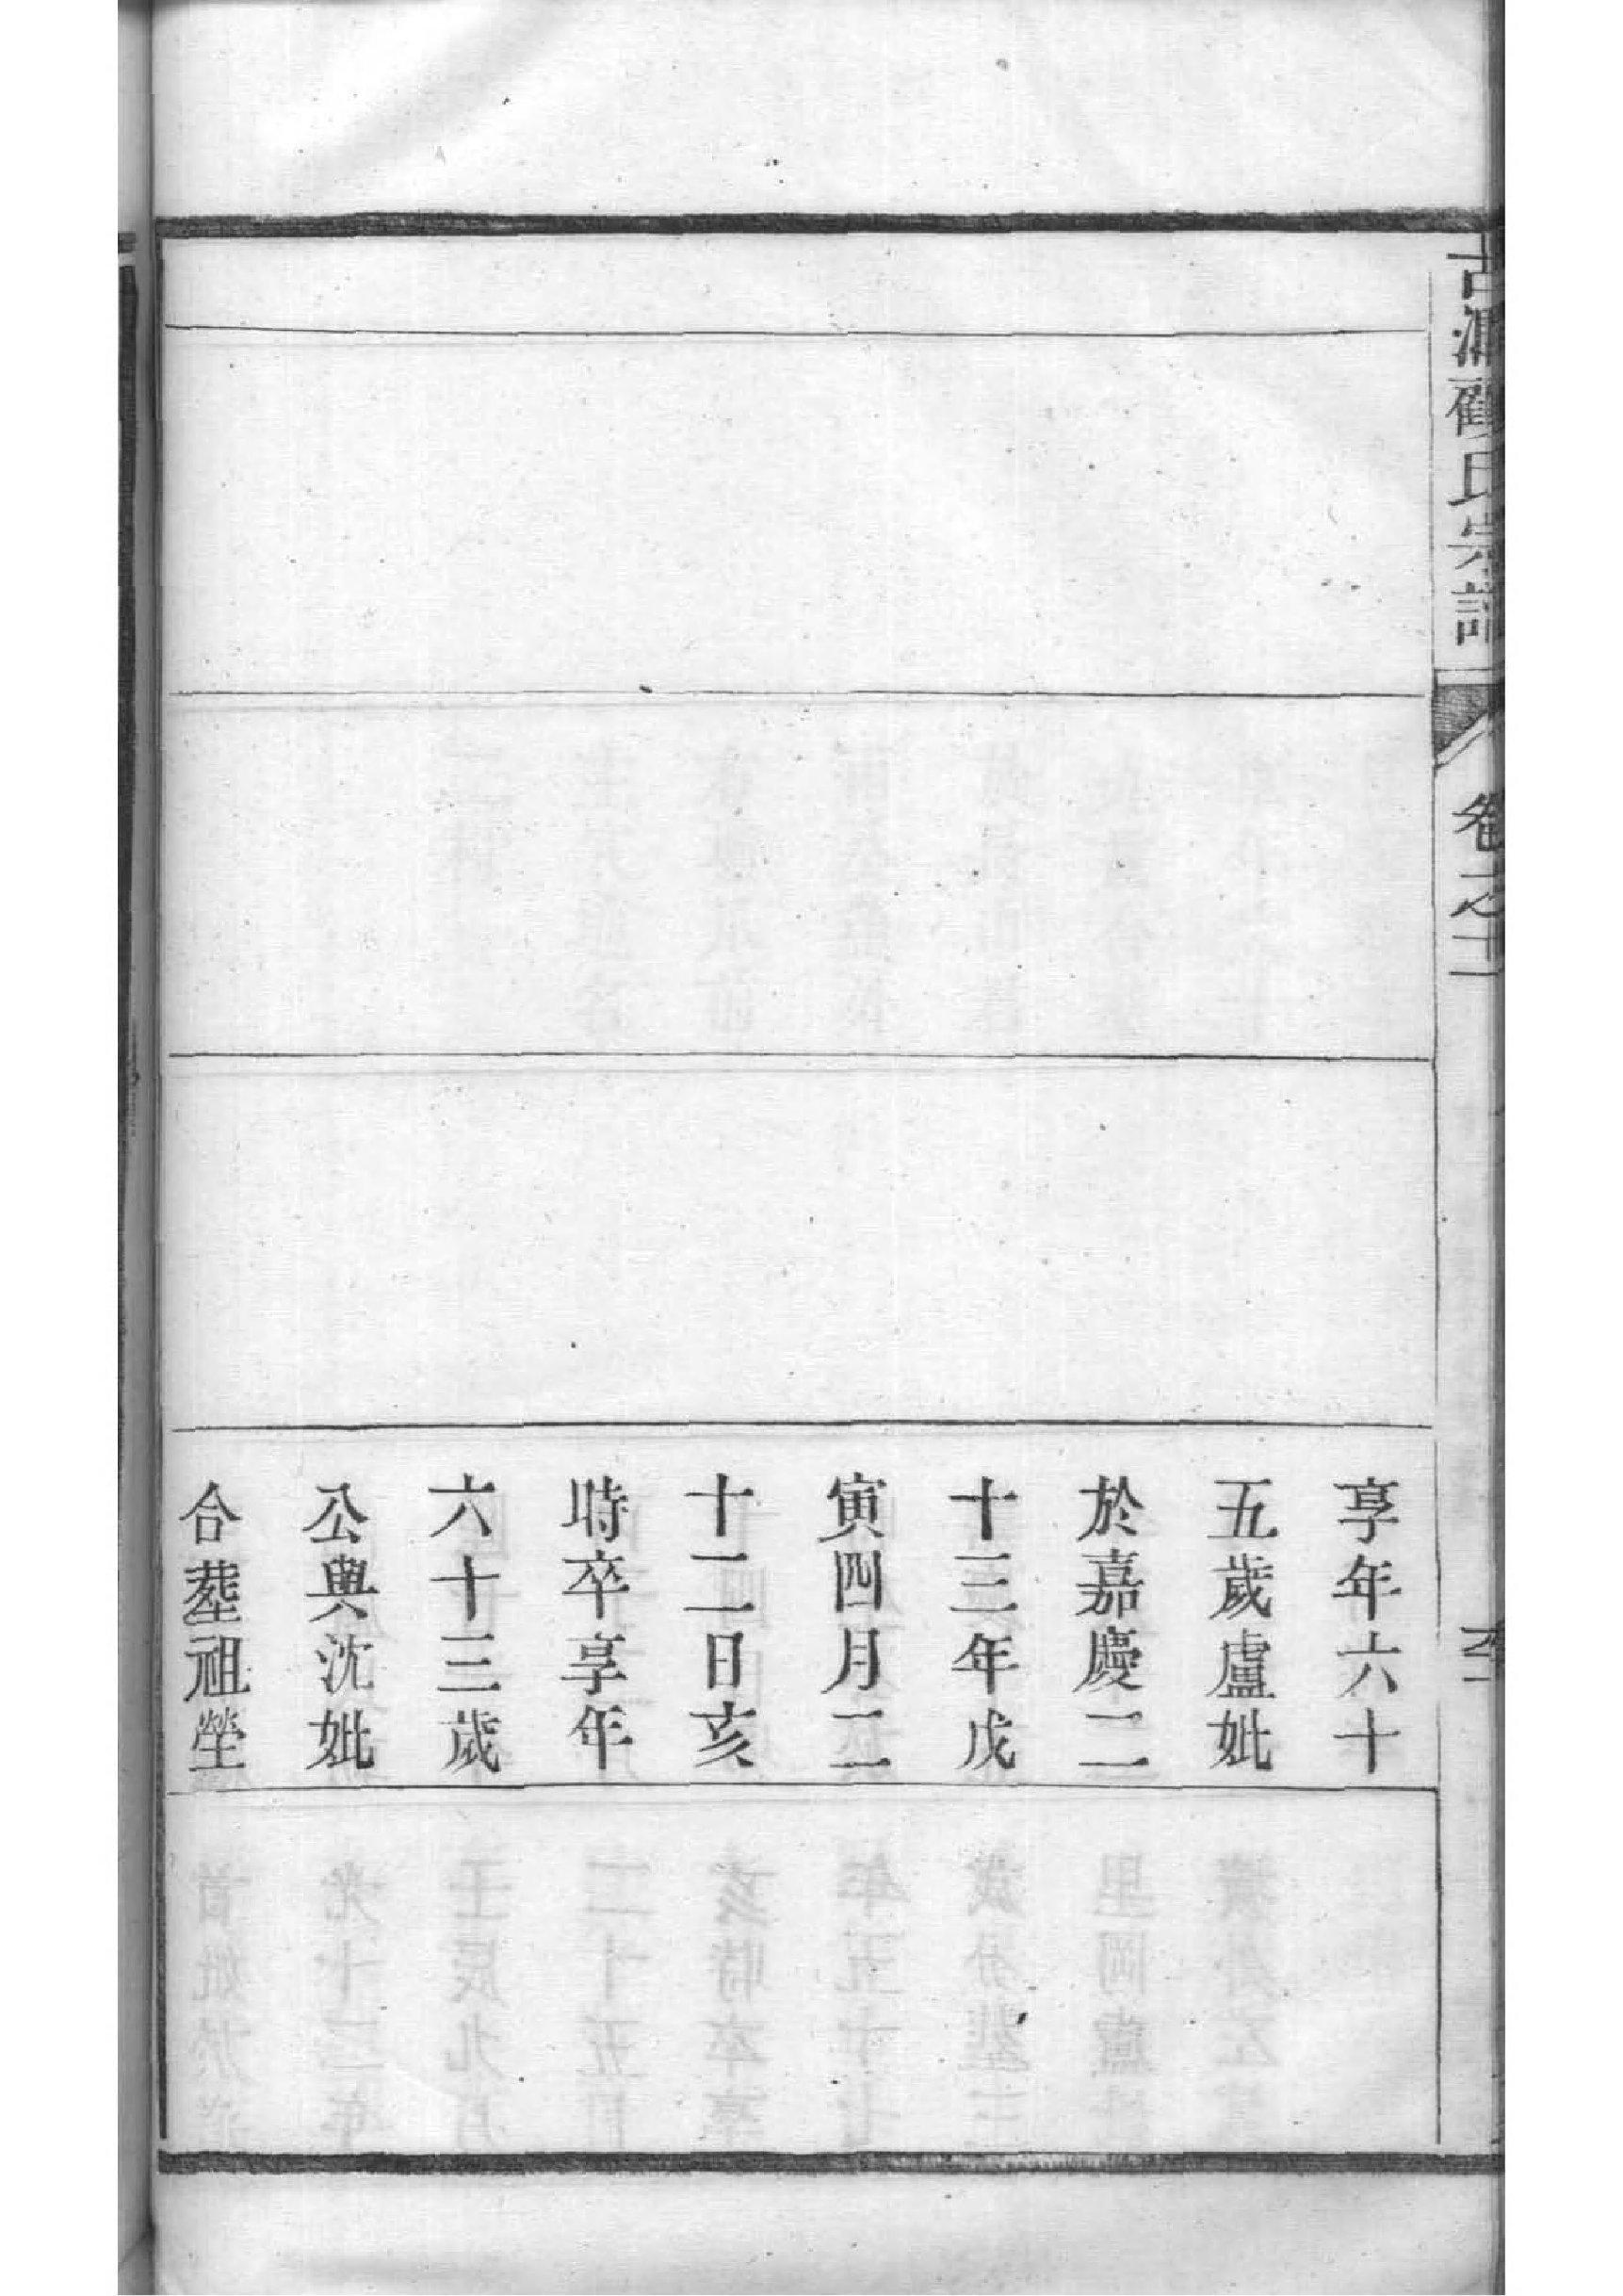 氏宗譜
卷之十二
享年六十
五歲盧妣
於嘉慶二
十三年戊
寅四月二
十二日亥
時卒享年
六十三歲
公與沈妣
合塟祖塋